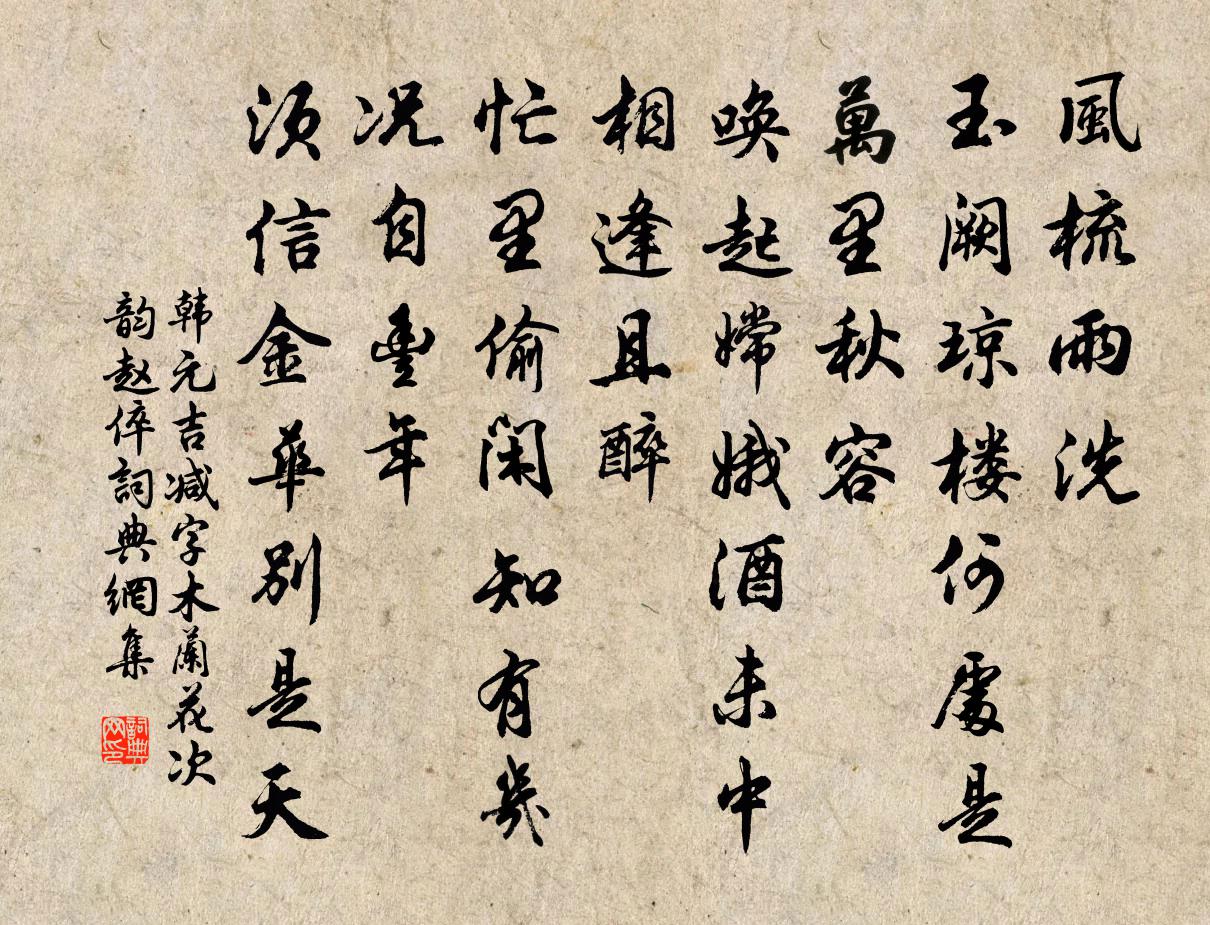 風梳雨洗
玉阙琼楼何處是
萬里秋容
唤起嫦娥酒未中
相逢且醉
忙里偷闲知有幾
况自豐年
须信金華别是天
韩元吉减字木蘭花次
韵赵倅詞典網集
詞典
网印